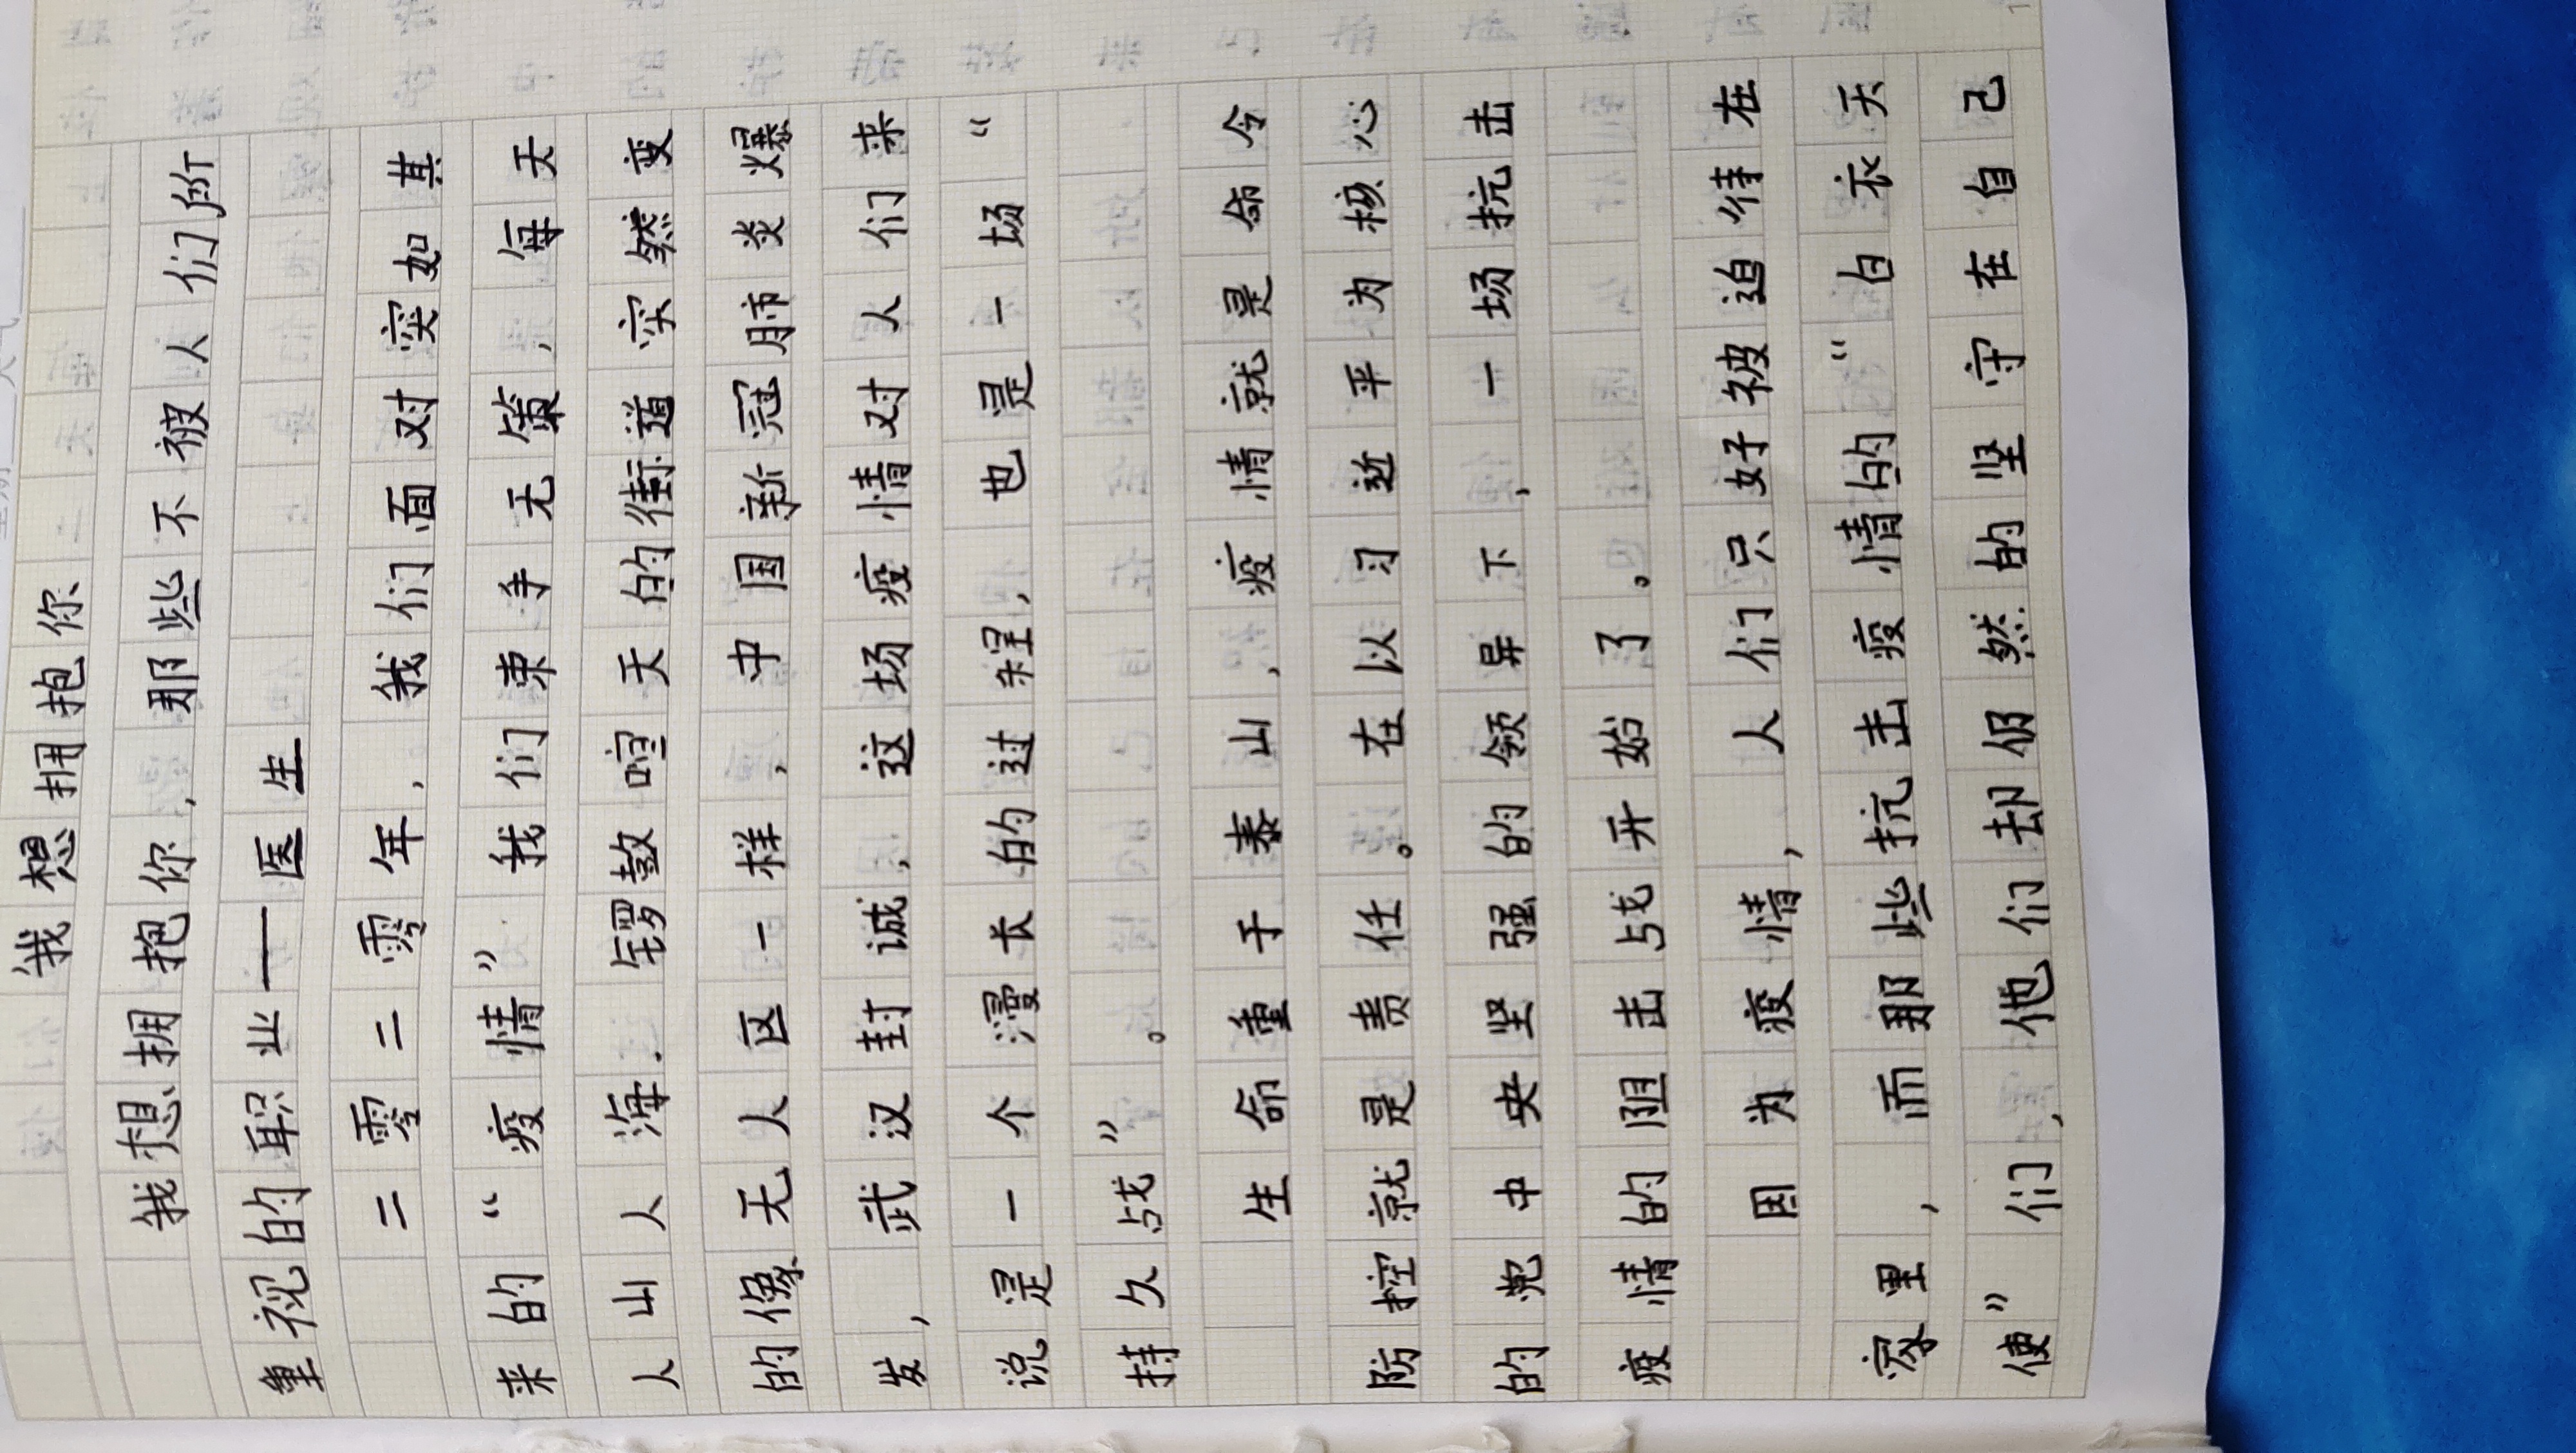 我想拥抱你
我想拥抱你,那些不被人们所
重视的职业——医生
二零二零年,我们面对突如其
来的“疫情”我们束手无策,每天
人山人海.锣鼓喧天的街道突然变
的像无人区一样,中国新冠肺炎爆
发,武汉封诚,这场疫情对人们来
说是一个漫长的过程,也是一场“
持久战”。
生命重于泰山,疫情就是命令
防控就是责任。在以习近平为核心
的党中央坚强的领导下,一场抗击
疫情的阻击战开始了。
因为疫情,人们只好被迫待在
家里,而那些抗击疫情的“白衣天
使”们,他们却仍然的坚守在自己